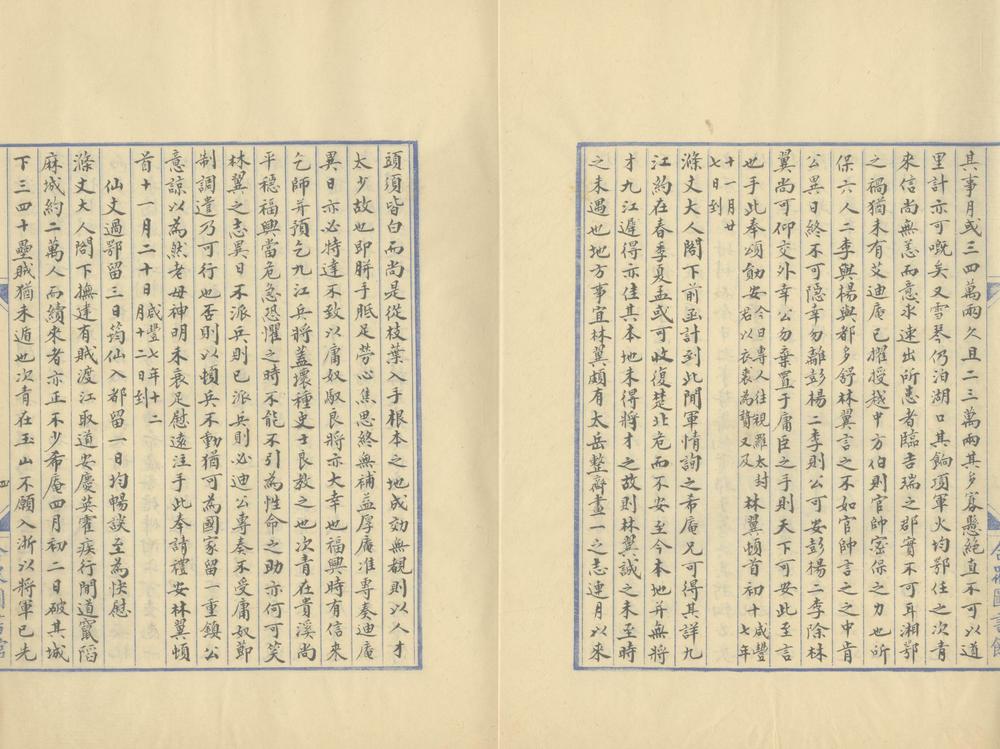 其事月或三四萬兩久且二三萬兩其多寡懸絕直不可以道
里計亦可嘅矣又雪琴仍泊湖口其餉項軍火均鄂任之次青
來信尚無恙而意求速出所患者臨吉瑞之郡實不可耳湘鄂
之禍猶未有艾迪庵已擢授越中方伯則官帥密保之力也所
保六人二李與楊與都多舒林翼言之不如官帥言之之中肯
公異日終不可隱幸勿離彭楊二李則公可安彭楊二李除林
翼尚可仰交外幸公勿棄置于庸臣之手則天下可安此至言
也手此奉頌勛安今日專人往視羅太封君以衣裘為贄又及 林翼頓首初十咸豐七年
十一月廿七日到
滌丈大人閣下前函計到此間軍情詢之希庵兄可得其詳九
江約在春季夏孟或可收復楚北危而不安至今本地并無將
才九江遲得亦佳其本地未得將才之故則林翼誠之未至時
之未遇也地方事宜林翼頗有太岳整齊畫一之志連月以來
頭須皆白而尚是從枝葉入手根本之地成効無覩則以人才
太少故也即胼手胝足勞心焦思終無補益厚庵准專奏迪庵
異日亦必特達不致以庸奴馭良將亦大幸也福興時有信來
乞師并預乞九江兵將蓋壞種史士良教之也次青在貴溪尚
平穩福興當危急恐懼之時不能不引為性命之助亦何可笑
林翼之志異日不派兵則已派兵則必迪公專奏不受庸奴節
制調遣乃可行也否則以頓兵不動猶可為國家留一重鎮公
意諒以為然老母神明未衰足慰遠注手此奉請禮安林翼頓
首十一月二十日咸豐七年十二月十二日到
仙丈過鄂留三日筠仙入都留一日均暢談至為快慰
滌丈大人閣下撫建有賊渡江取道安慶英霍疾行間道竄陷
麻城約二萬人而續來者亦正不少希庵四月初二日破其城
下三四十壘賊猶未遁也次青在玉山不願入浙以將軍已先
四